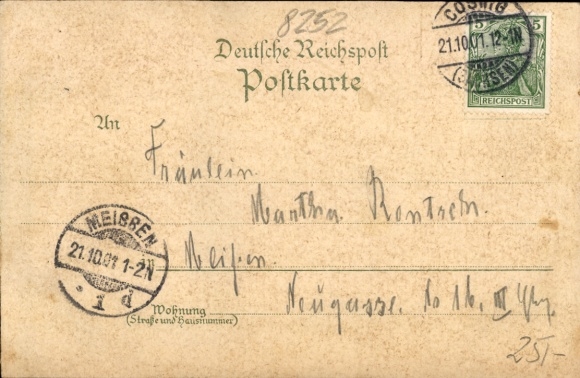 8252
Deutsche Reichspost
Postkarte
COSWIG
21.10.01. 12-1N
(SACHSEN)
5 5
REICHSPOST
An
Fräulein
Martha
Meißen.
Neugasse. No 16. III
MEISSEN
21.10.01 1-2N
1 d
Wohnung
(Straße und Hausnummer)
25,-